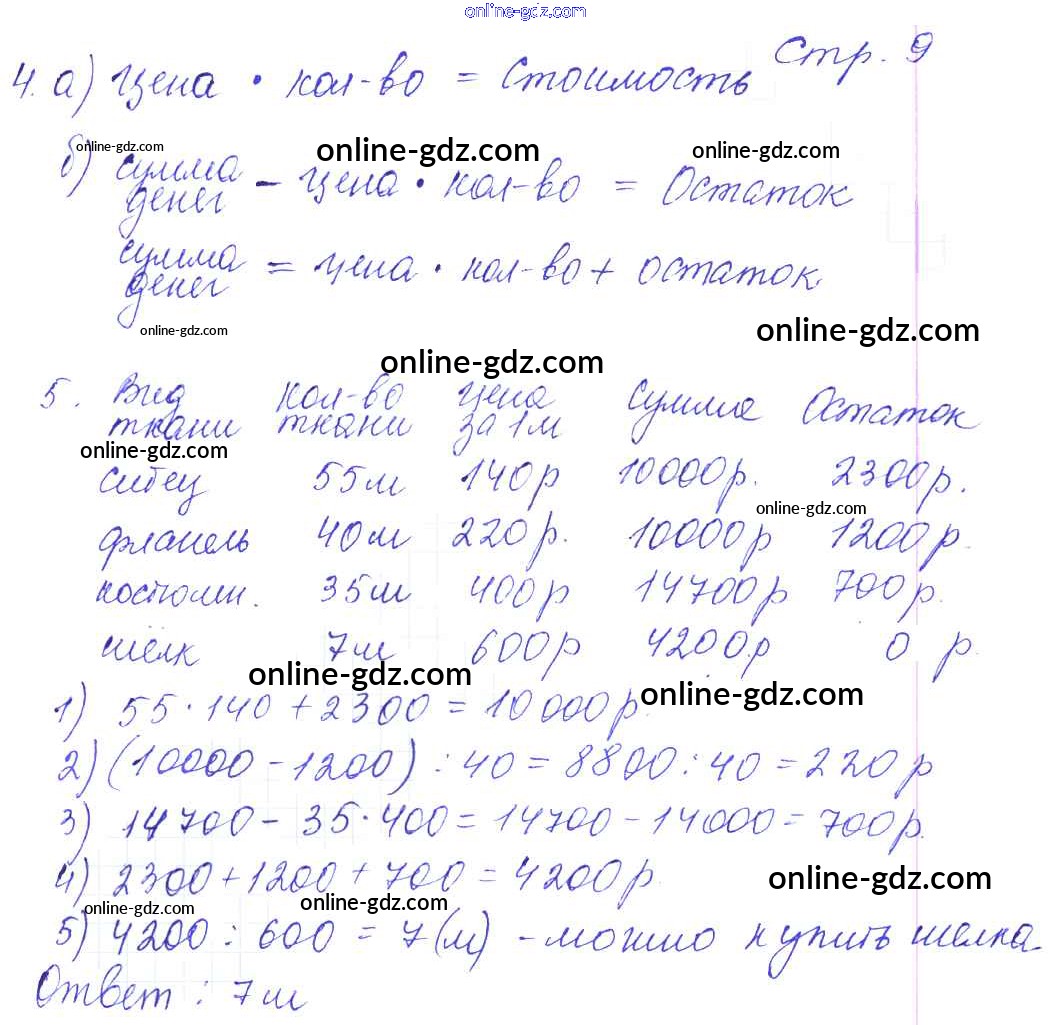 online-gdz.com
Стр. 9
4. а) Цена · кол-во = Стоимость
online-gdz.com online-gdz.com online-gdz.com
б) сумма денег - цена · кол-во = Остаток
сумма денег = цена · кол-во + остаток.
online-gdz.com online-gdz.com
online-gdz.com
5. Вид ткани кол-во ткани цена за 1м Сумма Остаток
online-gdz.com
ситец 55м 140р 10000р. 2300р.
online-gdz.com
фланель 40м 220р. 10000р 1200р.
костюмн. 35м 400р 14700р 700р.
шёлк 7м 600р 4200р 0 р.
online-gdz.com online-gdz.com
1) 55·140 + 2300 = 10000р.
2) (10000 - 1200) : 40 = 8800 : 40 = 220р
3) 14700 - 35·400 = 14700 - 14000 = 700р.
4) 2300 + 1200 + 700 = 4200р.
online-gdz.com online-gdz.com online-gdz.com
5) 4200 : 600 = 7(м) - можно купить шелка.
Ответ : 7м